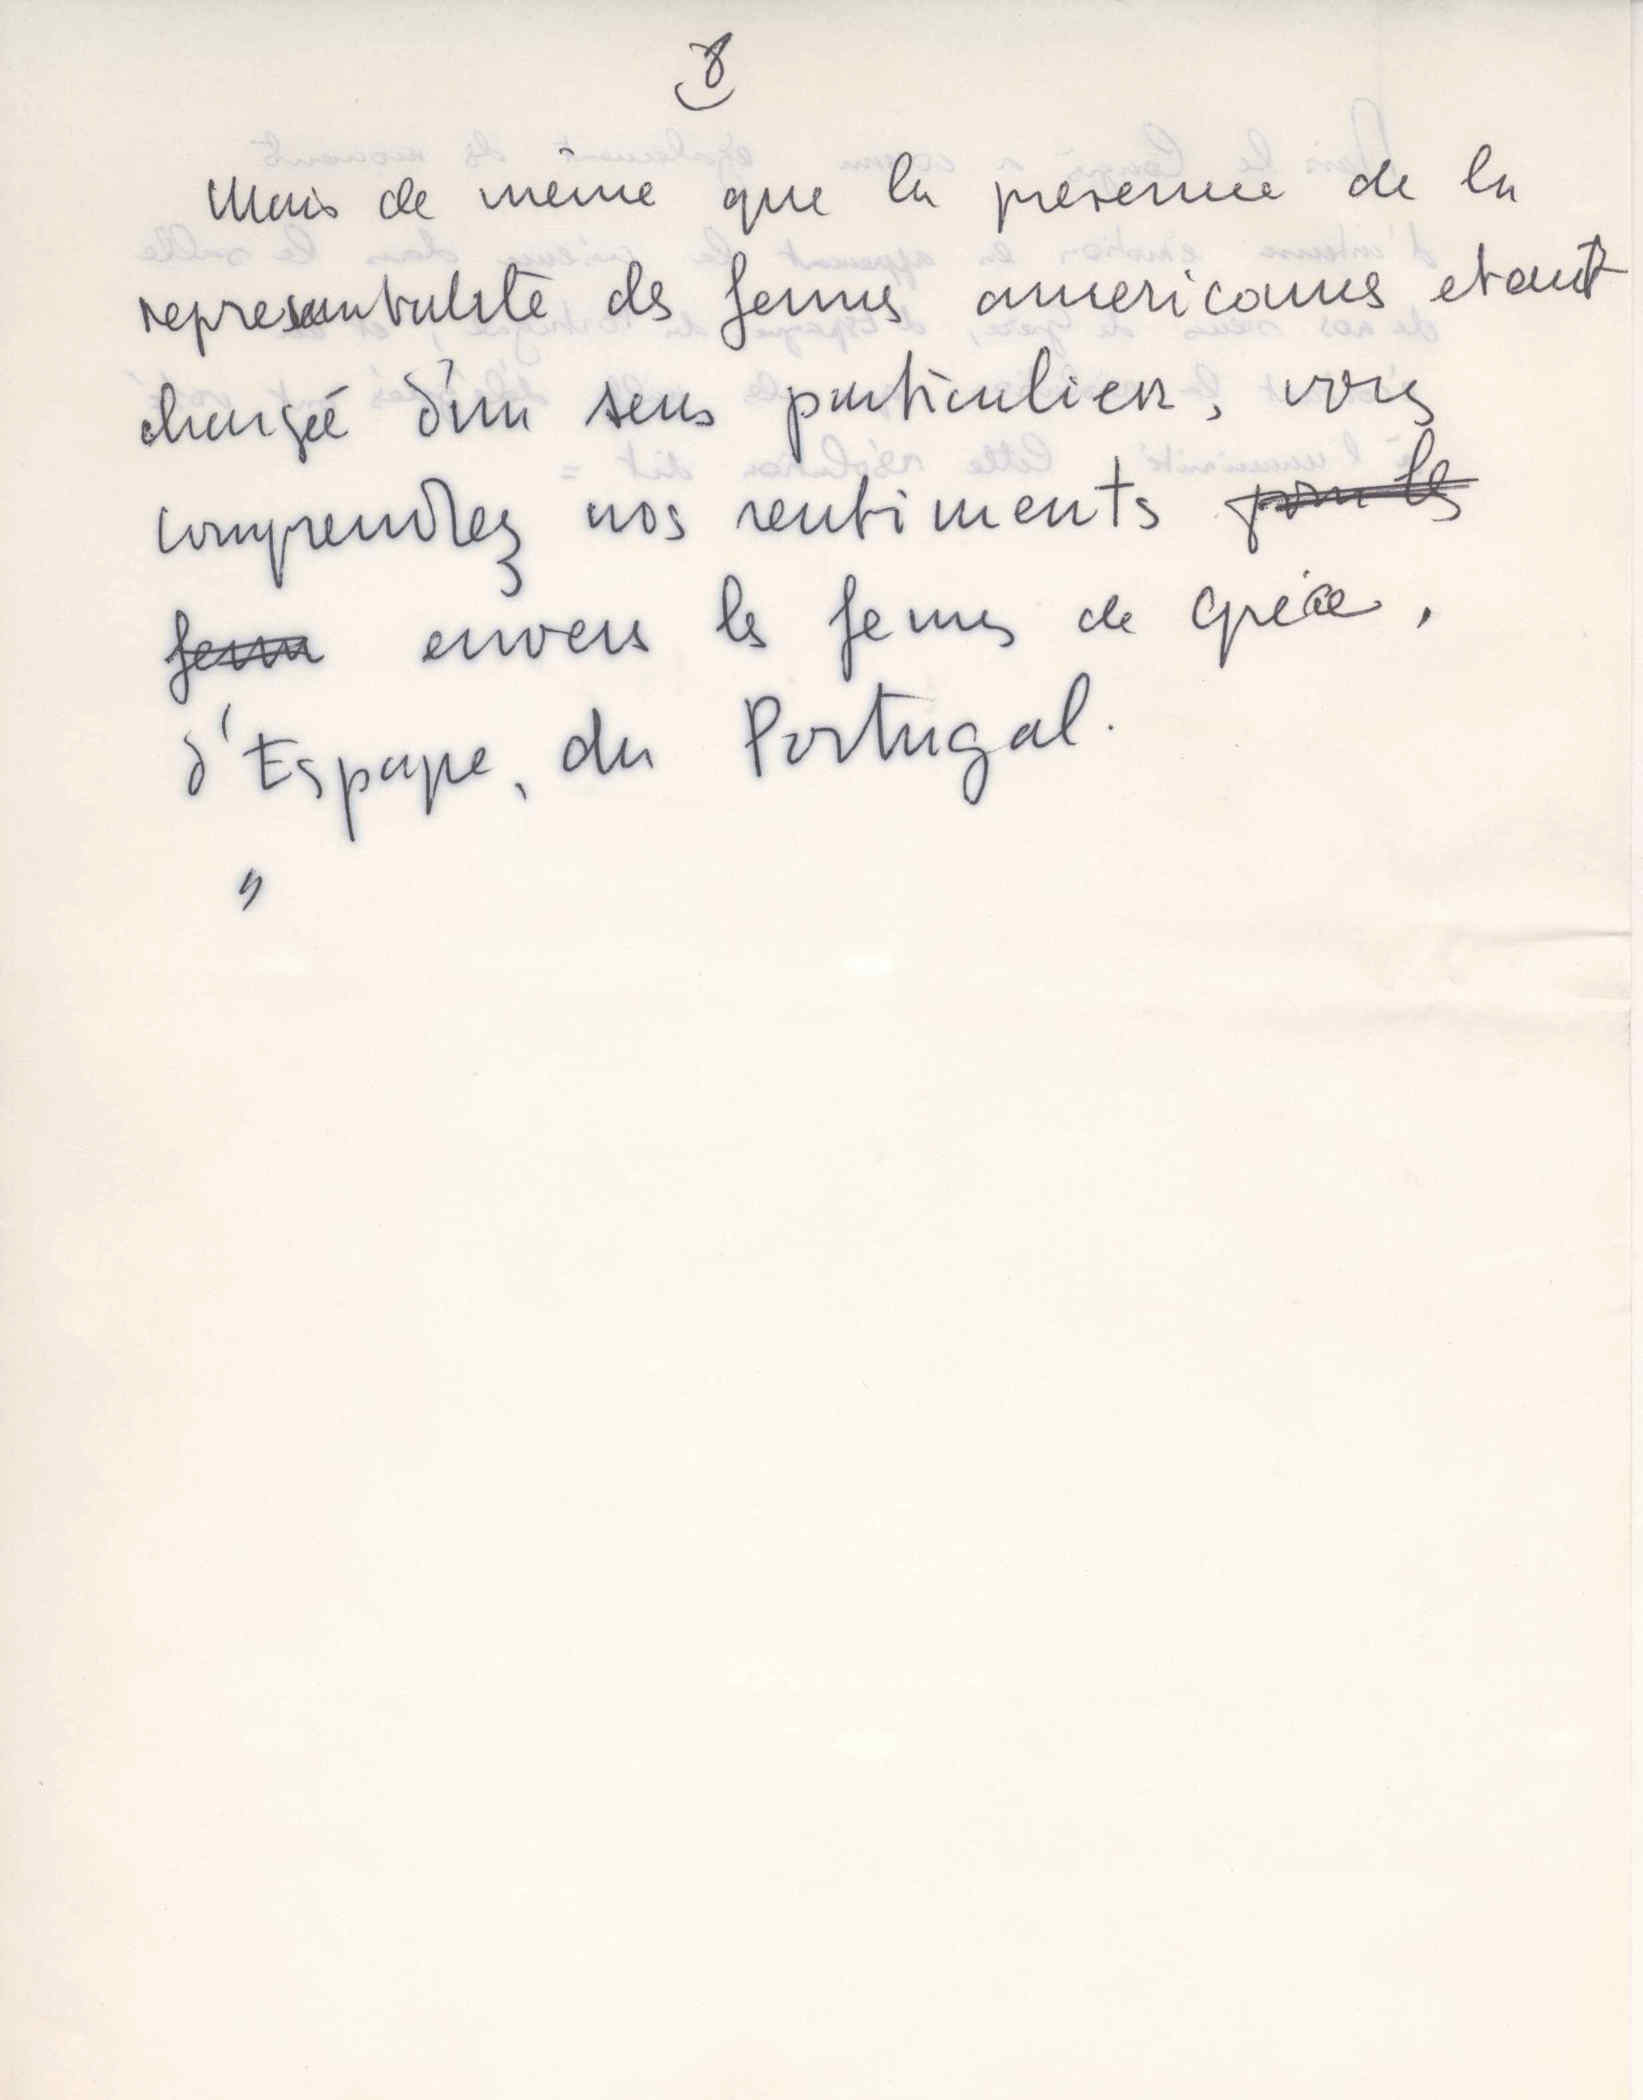 8
Mais de même que la presence de la
representativité des femmes americaines etant
chargée d'un sens particulier, vous
comprendrez nos sentiments pour les
femm envers les femmes de Grèce,
d'Espagne, du Portugal.
"